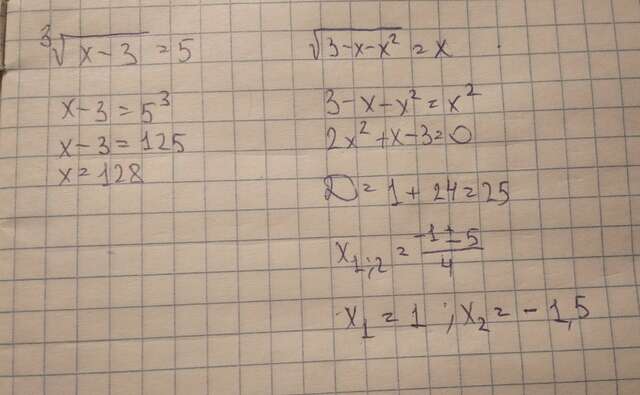 ∛(x-3) = 5
x-3 = 5³
x-3 = 125
x = 128
√(3-x-x²) = x
3-x-x² = x²
2x²+x-3=0
D = 1 + 24 = 25
x₁;₂ = (-1±5)/4
x₁ = 1 ; x₂ = -1,5